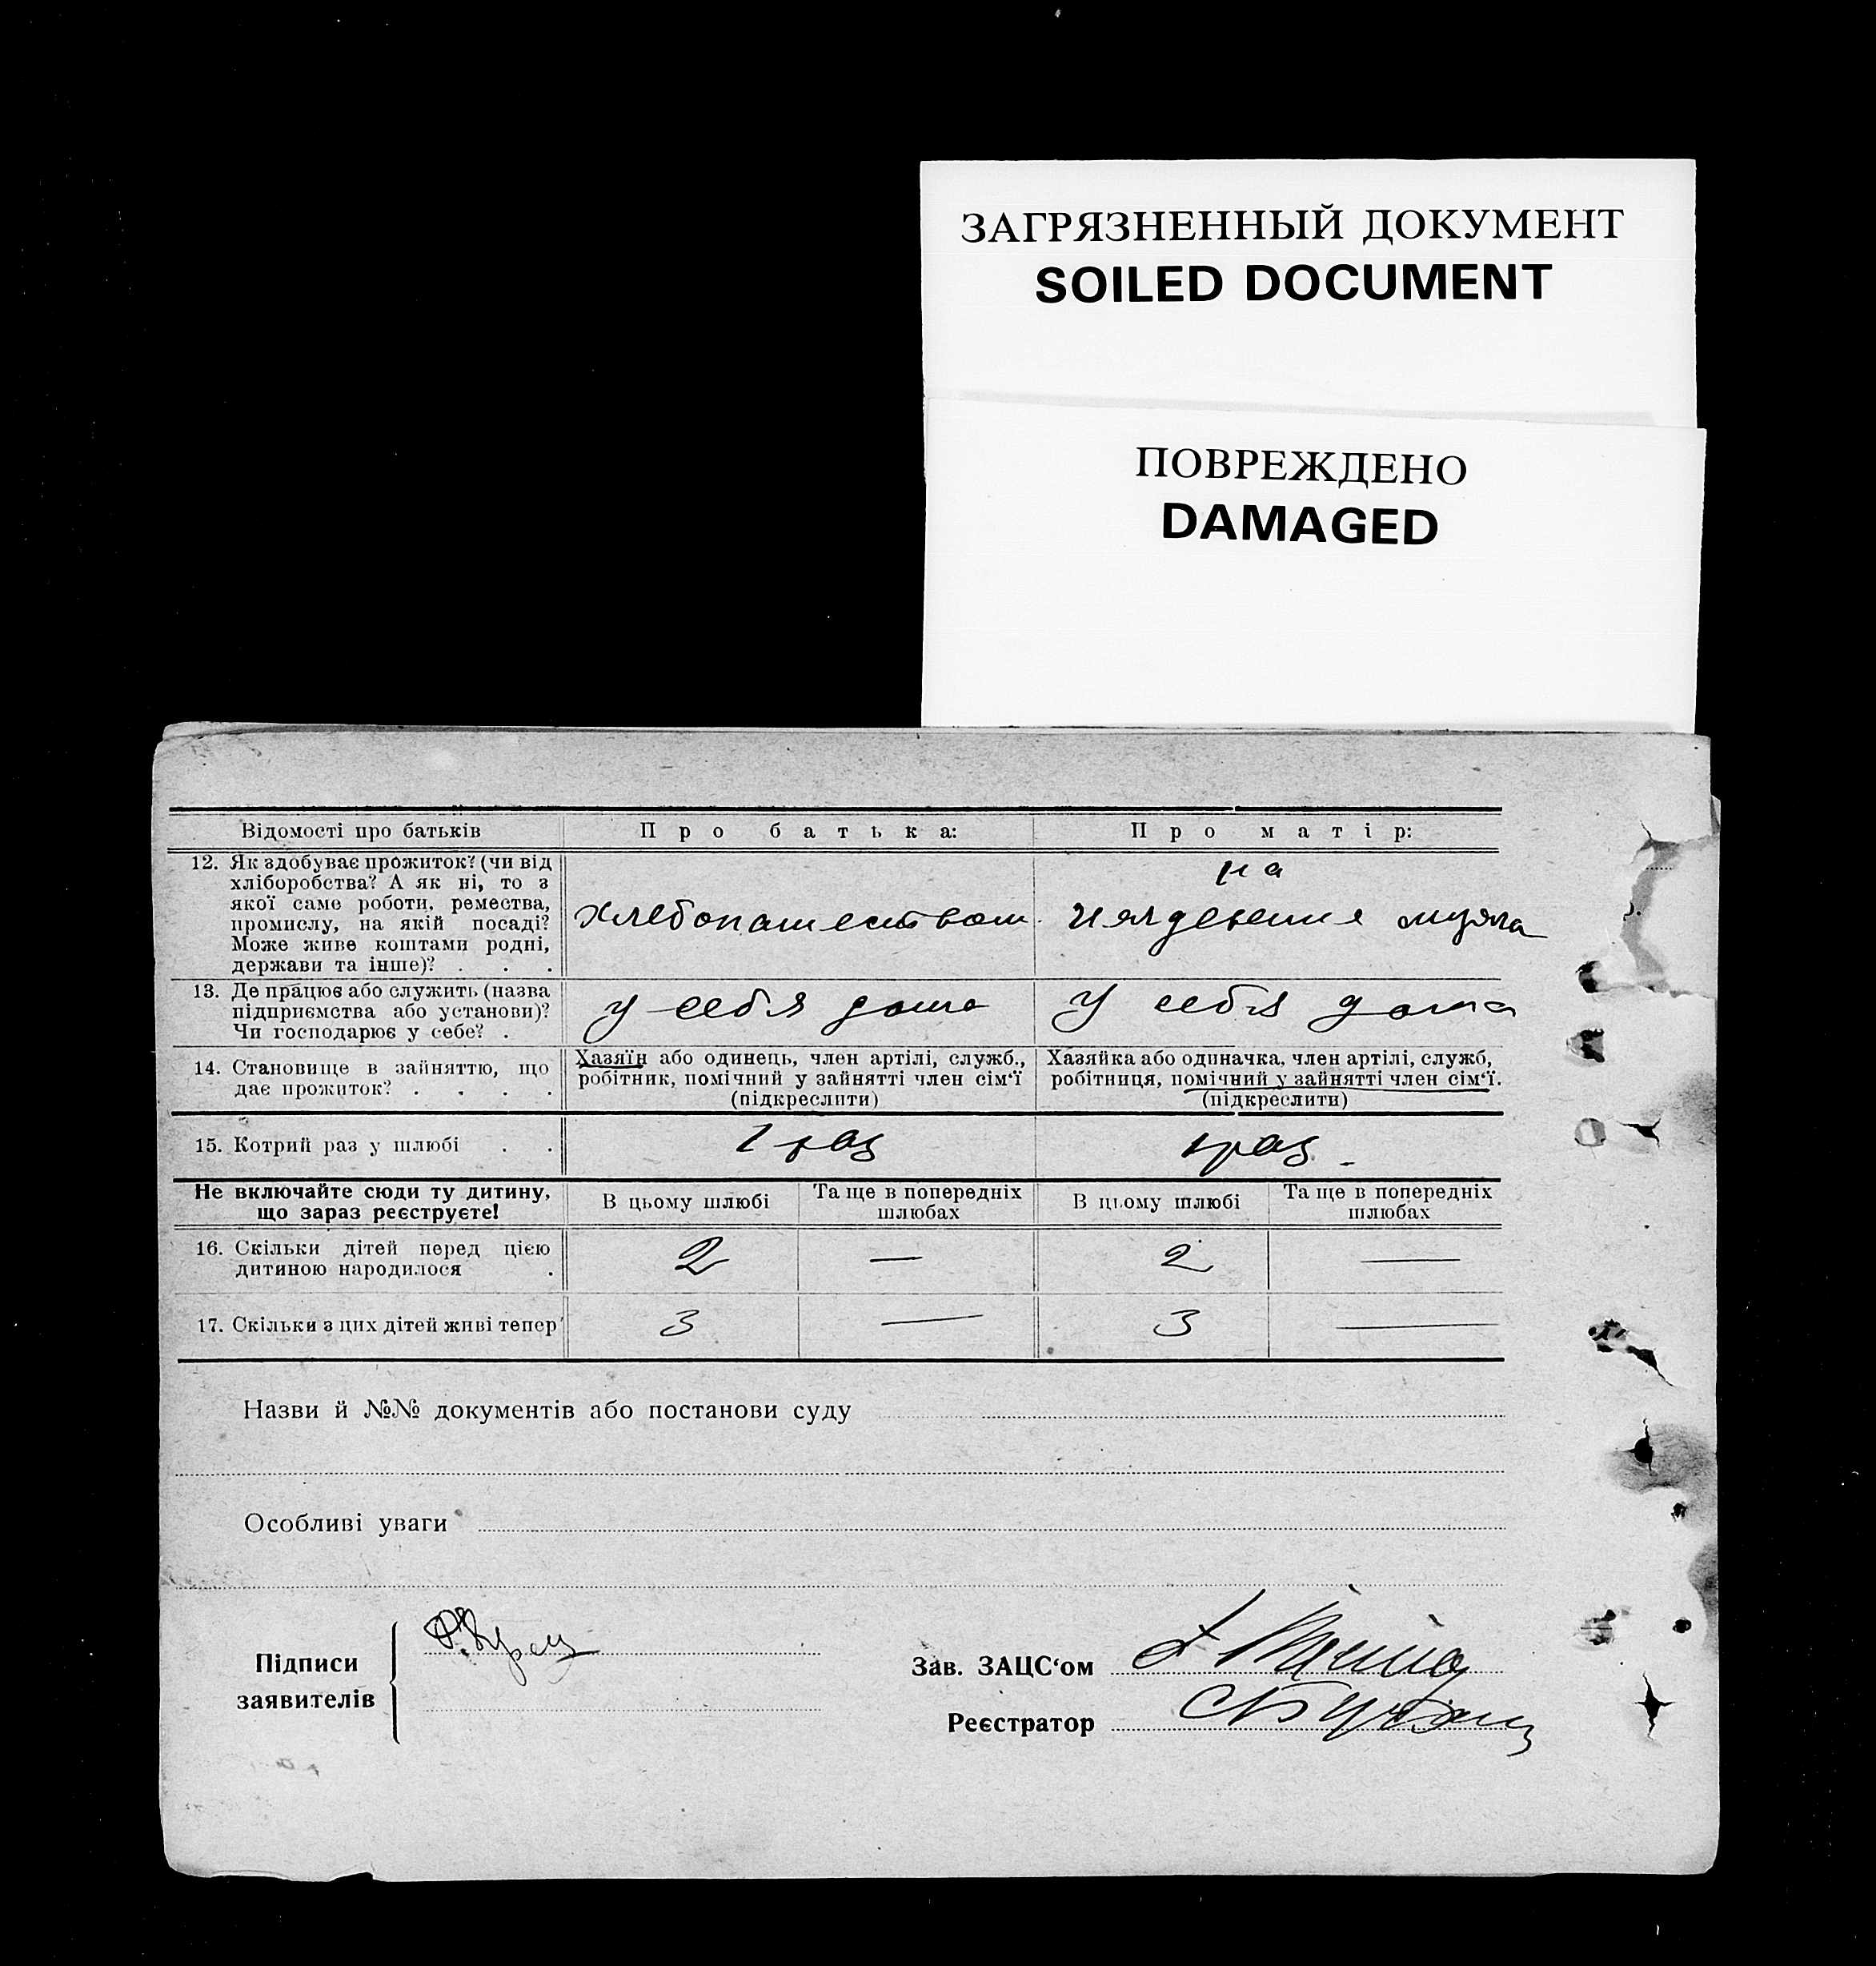 ЗАГРЯЗНЕННЫЙ ДОКУМЕНТ
SOILED DOCUMENT
ПОВРЕЖДЕНО
DAMAGED
Відомості про батьків
Про батька:
Про матір:
12. Як здобуває прожиток? (чи від
хліборобства? А як ні, то з
якої саме роботи, ремества,
промислу, на якій посаді?
Може живе коштами родні,
держави та інше)? . . .
хлебопашеством
на
иждевение мужа
13. Де працює або служить (назва
підприємства або установи)?
Чи господарює у себе? .
у себя дома
у себя дома
14. Становище в зайняттю, що
дає прожиток? . . . .
Хазяїн або одинець, член артілі, служб.,
робітник, помічний у зайнятті член сім‘ї
(підкреслити)
Хазяйка або одиначка, член артілі, служб,
робітниця, помічний у зайнятті член сім‘ї.
(підкреслити)
15. Котрий раз у шлюбі . .
1 раз
1 раз
Не включайте сюди ту дитину,
що зараз реєструєте!
В цьому шлюбі
Та ще в попередніх
шлюбах
В цьому шлюбі
Та ще в попередніх
шлюбах
16. Скільки дітей перед цією
дитиною народилося .
2 — 2 —
17. Скільки з цих дітей живі тепер
3 — 3 —
Назви й №№ документів або постанови суду
Особливі уваги
Підписи
заявителів
Зав. ЗАЦС‘ом
Реєстратор